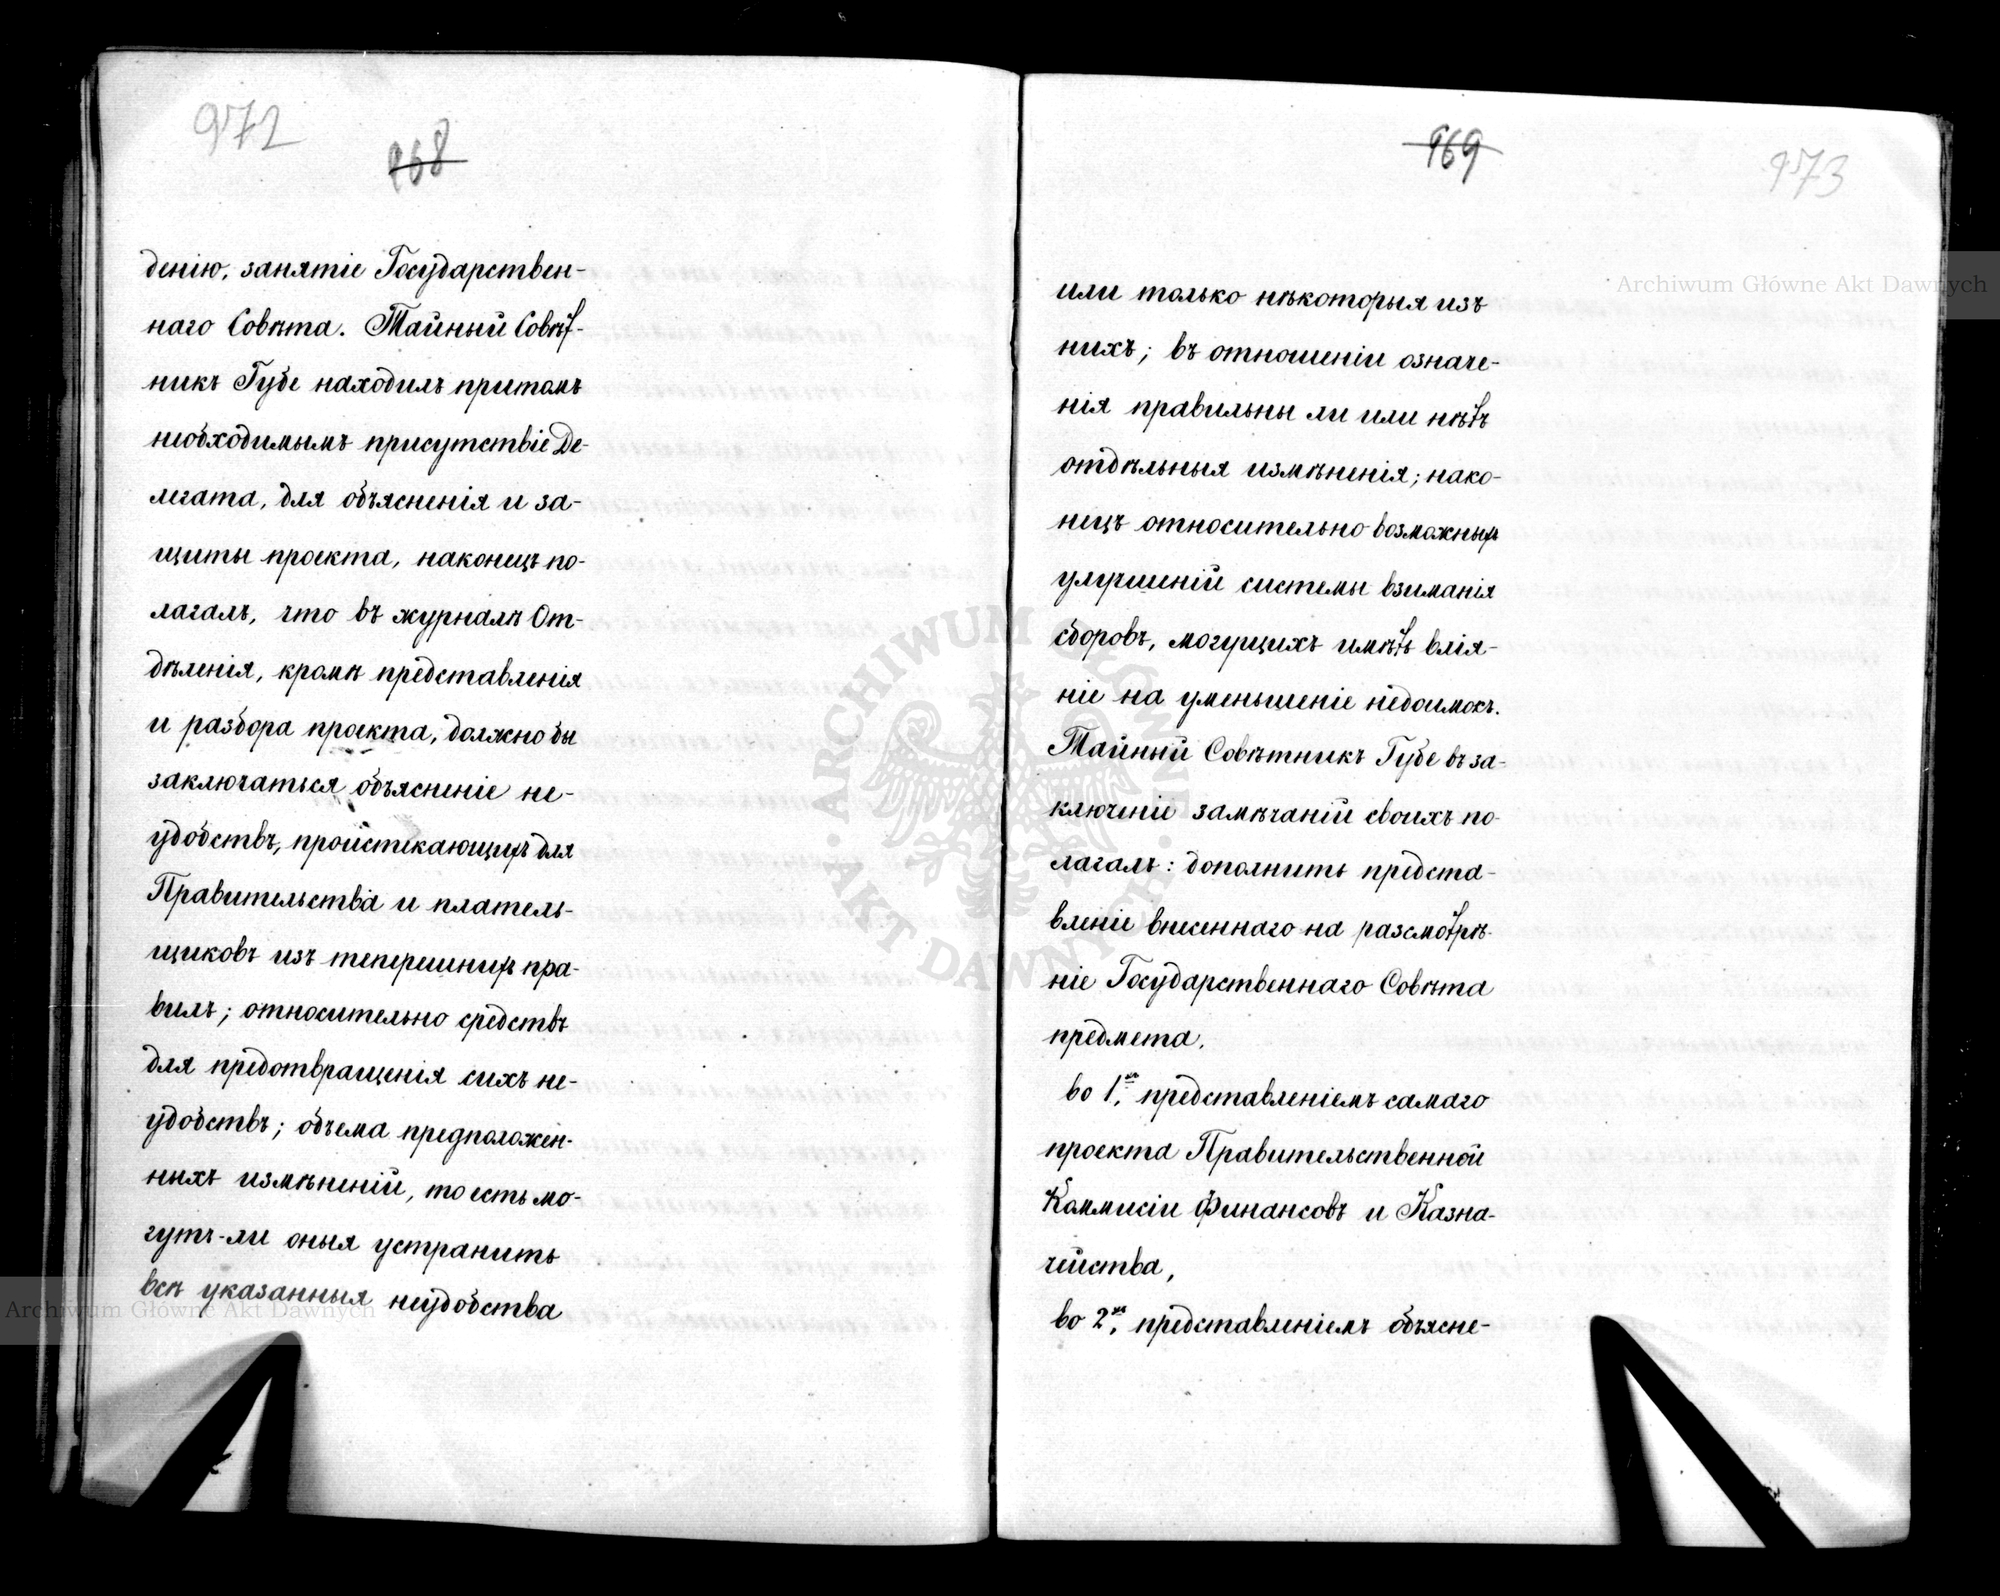 972
968
денію, занятіе Государствен-
наго Совѣта. Тайный Совѣт-
никъ Губе находилъ притомъ
необходимымъ присутствіе Де-
легата, для объясненія и за-
щиты проекта, наконецъ по-
лагалъ, что въ журналѣ От-
дѣленія, кромѣ представленія
и разбора проекта, должно бы
заключаться объясненіе не-
удобствъ, проистекающихъ для
Правительства и платель-
щиковъ изъ теперешнихъ пра-
вилъ; относительно средствъ
для предотвращенія сихъ не-
удобствъ; объема предположен-
ныхъ измѣненій, то есть мо-
гутъ-ли оныя устранить
всѣ указанныя неудобства
969
973
или только нѣкоторыя изъ
нихъ; въ отношеніи означе-
нія правильны ли или нѣтъ
отдѣльныя измѣненія; нако-
нецъ относительно возможныхъ
улучшеній системы взиманія
сборовъ, могущихъ имѣть влія-
ніе на уменьшеніе недоимокъ.
Тайный Совѣтникъ Губе въ за-
ключеніе замѣчаній своихъ по-
лагалъ: дополнить предста-
вленіе внесеннаго на разсмотрѣ-
ніе Государственнаго Совѣта
предмета.
во 1.хъ представленіемъ самаго
проекта Правительственной
Коммисіи Финансовъ и Казна-
чейства,
во 2.хъ представленіемъ объясне-
Archiwum Główne Akt Dawnych
Archiwum Główne Akt Dawnych
ARCHIWUM GŁÓWNE · AKT DAWNYCH ·